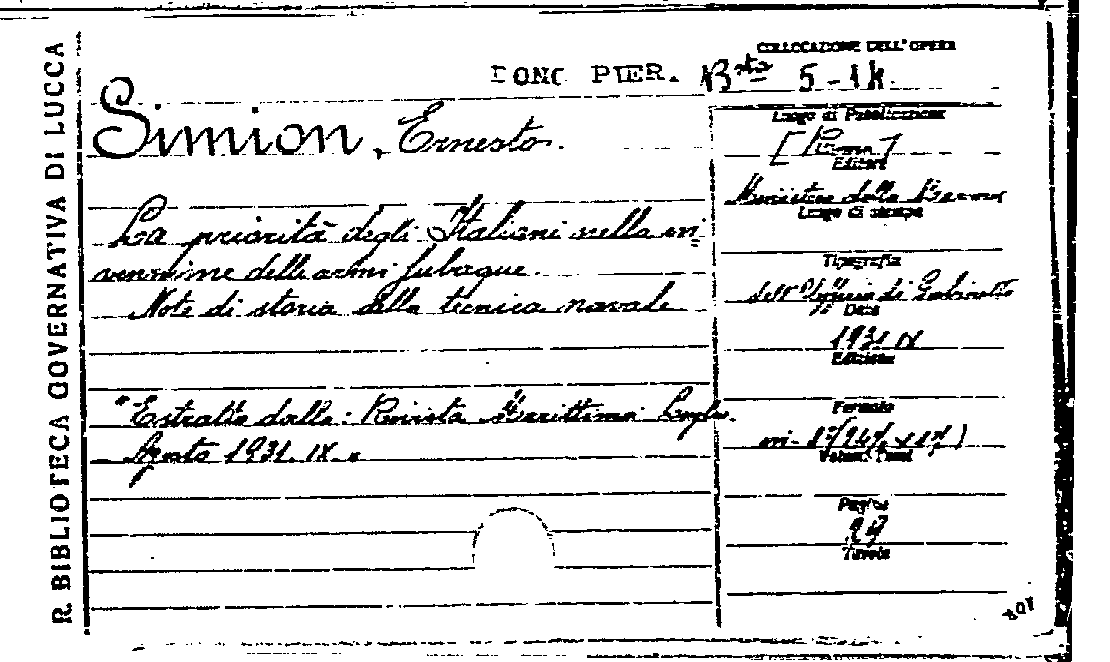 R. BIBLIOTECA GOVERNATIVA DI LUCCA
COLLOCAZIONE DELL'OPERA
DONO PIER. Bsta 5-14.
Simion, Ernesto.
Luogo di Pubblicazione
[Roma]
Editore
Ministero della Marina
Luogo di stampa
La priorità degli Italiani nella in=
venzione delle armi subaque.
Tipografia
Note di storia della tecnica navale
dell'Ufficio di Gabinetto
Data
1931. IX
Edizione
"Estratto dalla: Rivista Marittima Luglio.
Formato
Agosto 1931. IX."
in-
Volumi, Tomi
Pagine
29
Tavole